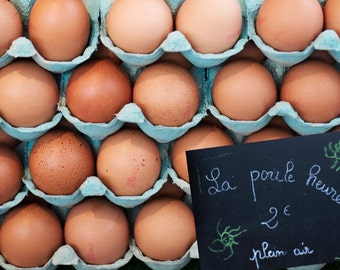 La poule heure
2€
plein air